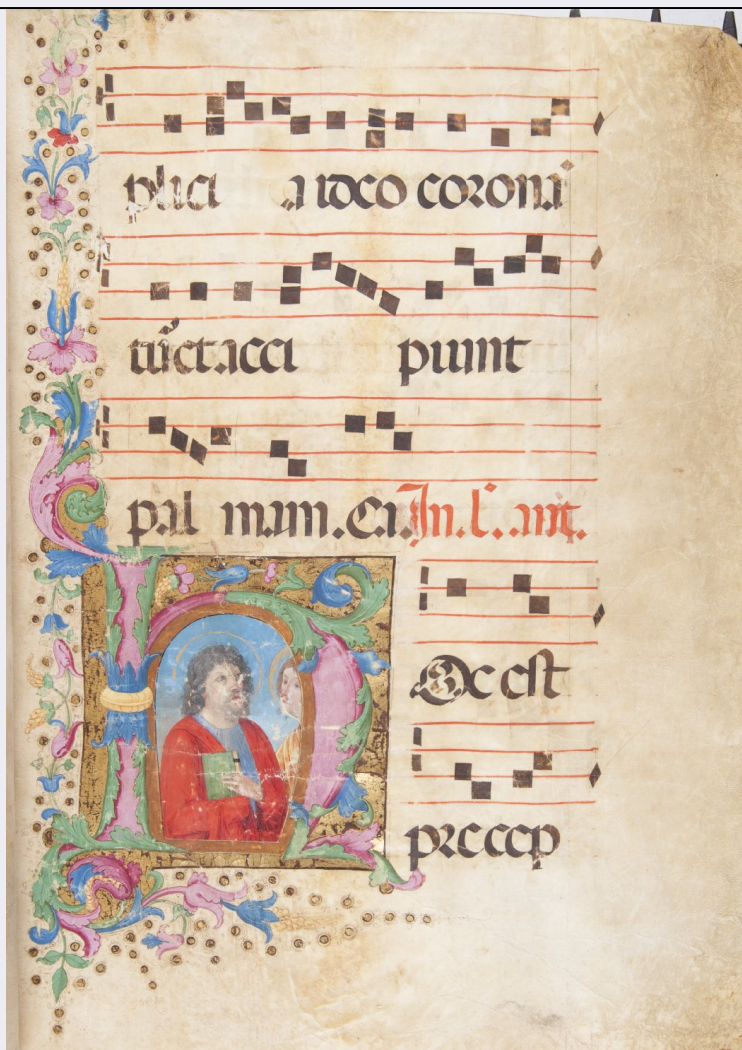 plici a ideo corona
tur et acci piunt
pal mam. Ev. In. l. ant.
Oc est
precep